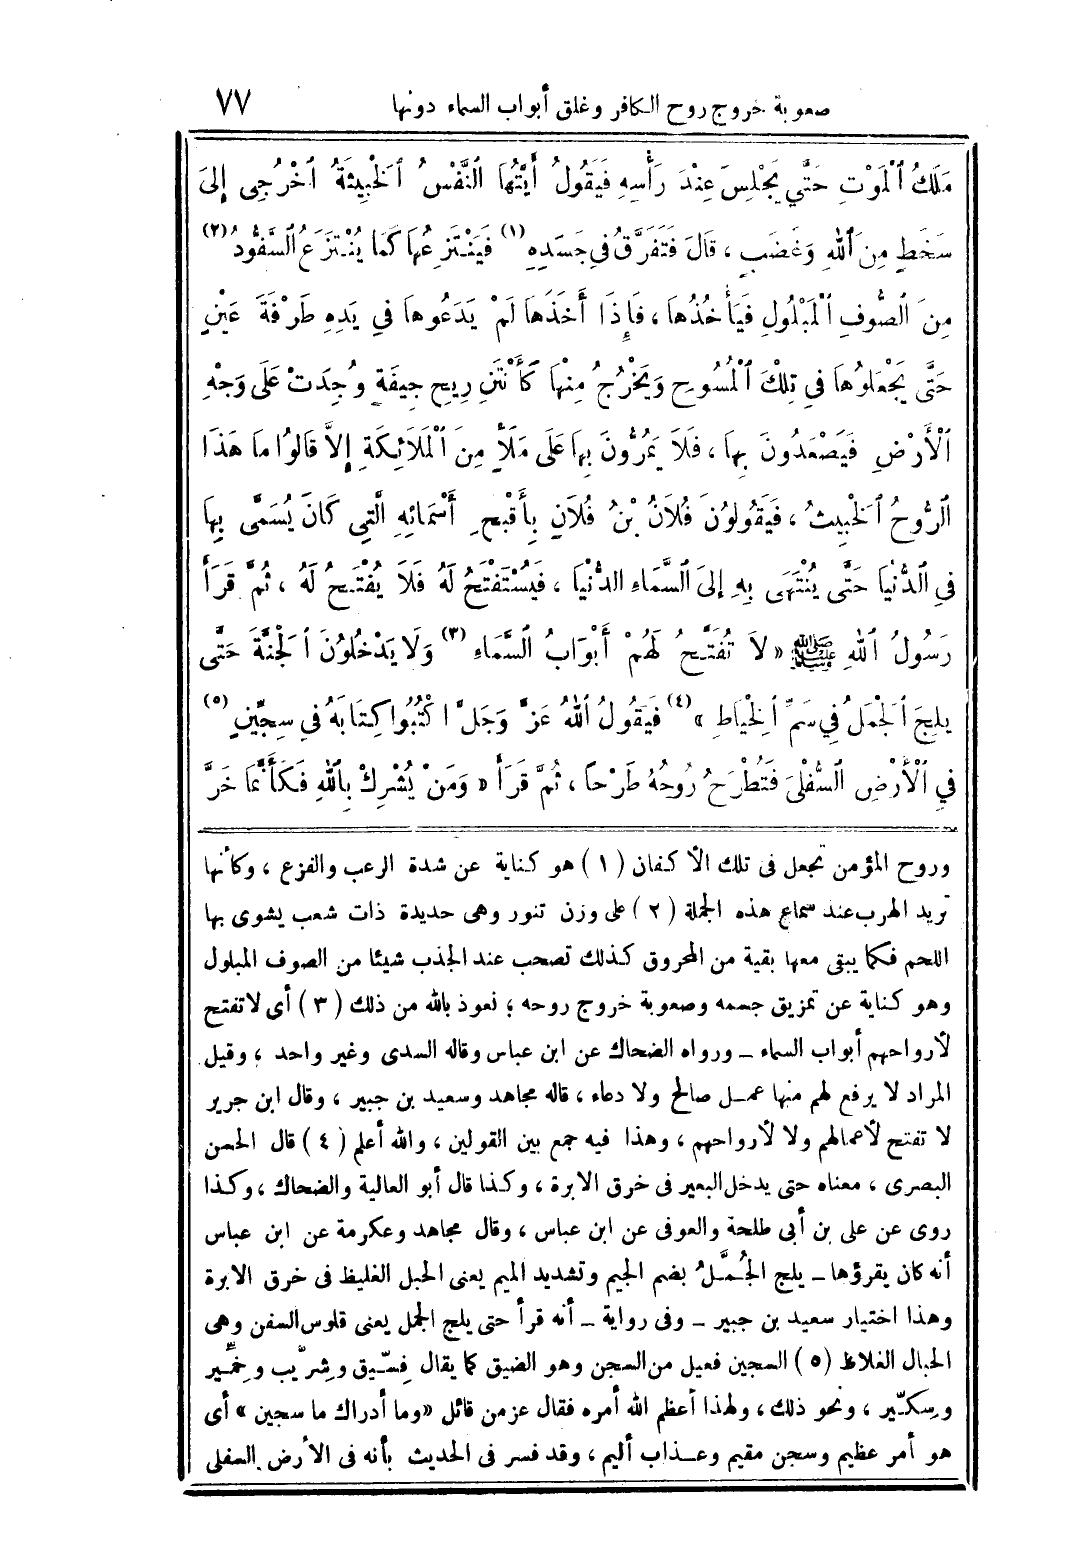 صعوبة خروج روح الكافر وغلق أبواب السماء دونها ٧٧
مَلَكُ ٱلْمَوْتِ حَتَّى يَجْلِسَ عِنْدَ رَأْسِهِ فَيَقُولُ أَيَّتُهَا ٱلنَّفْسُ ٱلْخَبِيثَةُ ٱخْرُجِى إِلَىَ
سَخَطٍ مِنَ ٱللهِ وَغَضَبٍ ، قَالَ فَتَفَرَّقُ فِي جَسَدِهِ (١) فَيَنْتَزِعُهَا كَمَا يُنْتَزَعُ ٱلسَّفُّودُ (٢)
مِنَ ٱلصُّوفِ ٱلْمَبْلُولِ فَيَأْخُذُهَا ، فَإِذَا أَخَذَهَا لَمْ يَدَعُوهَا فِي يَدِهِ طَرْفَةَ عَيْنٍ
حَتَّى يَجْعَلُوهَا فِي تِلْكَ ٱلْمُسُوحِ وَيَخْرُجُ مِنْهَا كَأَنْتَنِ رِيحِ جِيفَةٍ وُجِدَتْ عَلَى وَجْهِ
ٱلْأَرْضِ فَيَصْعَدُونَ بِهَا ، فَلاَ يَمُرُّونَ بِهَا عَلَى مَلَأٍ مِنَ ٱلْمَلَائِكَةِ إِلاَّ قَالُوا مَا هَذَا
ٱلرُّوحُ ٱلْخَبِيثُ ، فَيَقُولُونَ فُلَانُ بْنُ فُلَانٍ بِأَقْبَحِ أَسْمَائِهِ ٱلَّتِي كَانَ يُسَمَّى بِهَا
فِي ٱلدُّنْيَا حَتَّى يُنْتَهَى بِهِ إِلَىَ ٱلسَّمَاءِ الدُّنْيَا ، فَيُسْتَفْتَحُ لَهُ فَلَا يُفْتَحُ لَهُ ، ثُمَّ قَرَأَ
رَسُولُ ٱللهِ ﷺ « لاَ تُفَتَّحُ لَهُمْ أَبْوَابُ ٱلسَّمَاءِ (٣) وَلَا يَدْخُلُونَ ٱلْجَنَّةَ حَتَّى
يَلِجَ ٱلْجَمَلُ فِي سَمِّ ٱلْخِيَاطِ » (٤) فَيَقُولُ ٱللهُ عَزَّ وَجَلَّ ٱكْتُبُوا كِتَابَهُ فِي سِجِّينٍ (٥)
فِي ٱلْأَرْضِ ٱلسُّفْلَى فَتُطْرَحُ رُوحُهُ طَرْحًا ، ثُمَّ قَرَأَ « وَمَنْ يُشْرِكْ بِٱللهِ فَكَأَنَّمَا خَرَّ
وروح المؤمن تجعل فى تلك الأكفان (١) هو كناية عن شدة الرعب والفزع ، وكأنها
تريد الهرب عند سماع هذه الجملة (٢) على وزن تنور وهى حديدة ذات شعب يشوى بها
اللحم فكما يبقى معها بقية من المحروق كذلك تصحب عند الجذب شيئا من الصوف المبلول
وهو كناية عن تمزيق جسمه وصعوبة خروج روحه ؛ نعوذ بالله من ذلك (٣) أى لا تفتح
لأرواحهم أبواب السماء ـ ورواه الضحاك عن ابن عباس وقاله السدى وغير واحد ، وقيل
المراد لا يرفع لهم منها عمل صالح ولا دعاء ، قاله مجاهد وسعيد بن جبير ، وقال ابن جرير
لا تفتح لأعمالهم ولا لأرواحهم ، وهذا فيه جمع بين القولين ، والله أعلم (٤) قال الحسن
البصرى ، معناه حتى يدخل البعير فى خرق الابرة ، وكذا قال أبو العالية والضحاك ، وكذا
روى عن على بن أبى طلحة والعوفى عن ابن عباس ، وقال مجاهد وعكرمة عن ابن عباس
أنه كان يقرؤها ـ يلج الجُمَّلُ بضم الجيم وتشديد الميم يعنى الحبل الغليظ فى خرق الابرة
وهذا اختيار سعيد بن جبير ـ وفى رواية ـ أنه قرأ حتى يلج الجمل يعنى قلوس السفن وهى
الحبال الغلاظ (٥) السجين فعيل من السجن وهو الضيق كما يقال فِسِّيق وشِرِّيب وخِمِّير
وسِكِّير ، ونحو ذلك ، ولهذا أعظم الله أمره فقال عز من قائل «وما أدراك ما سجين » أى
هو أمر عظيم وسجن مقيم وعذاب أليم ، وقد فسر فى الحديث بأنه فى الأرض السفلى